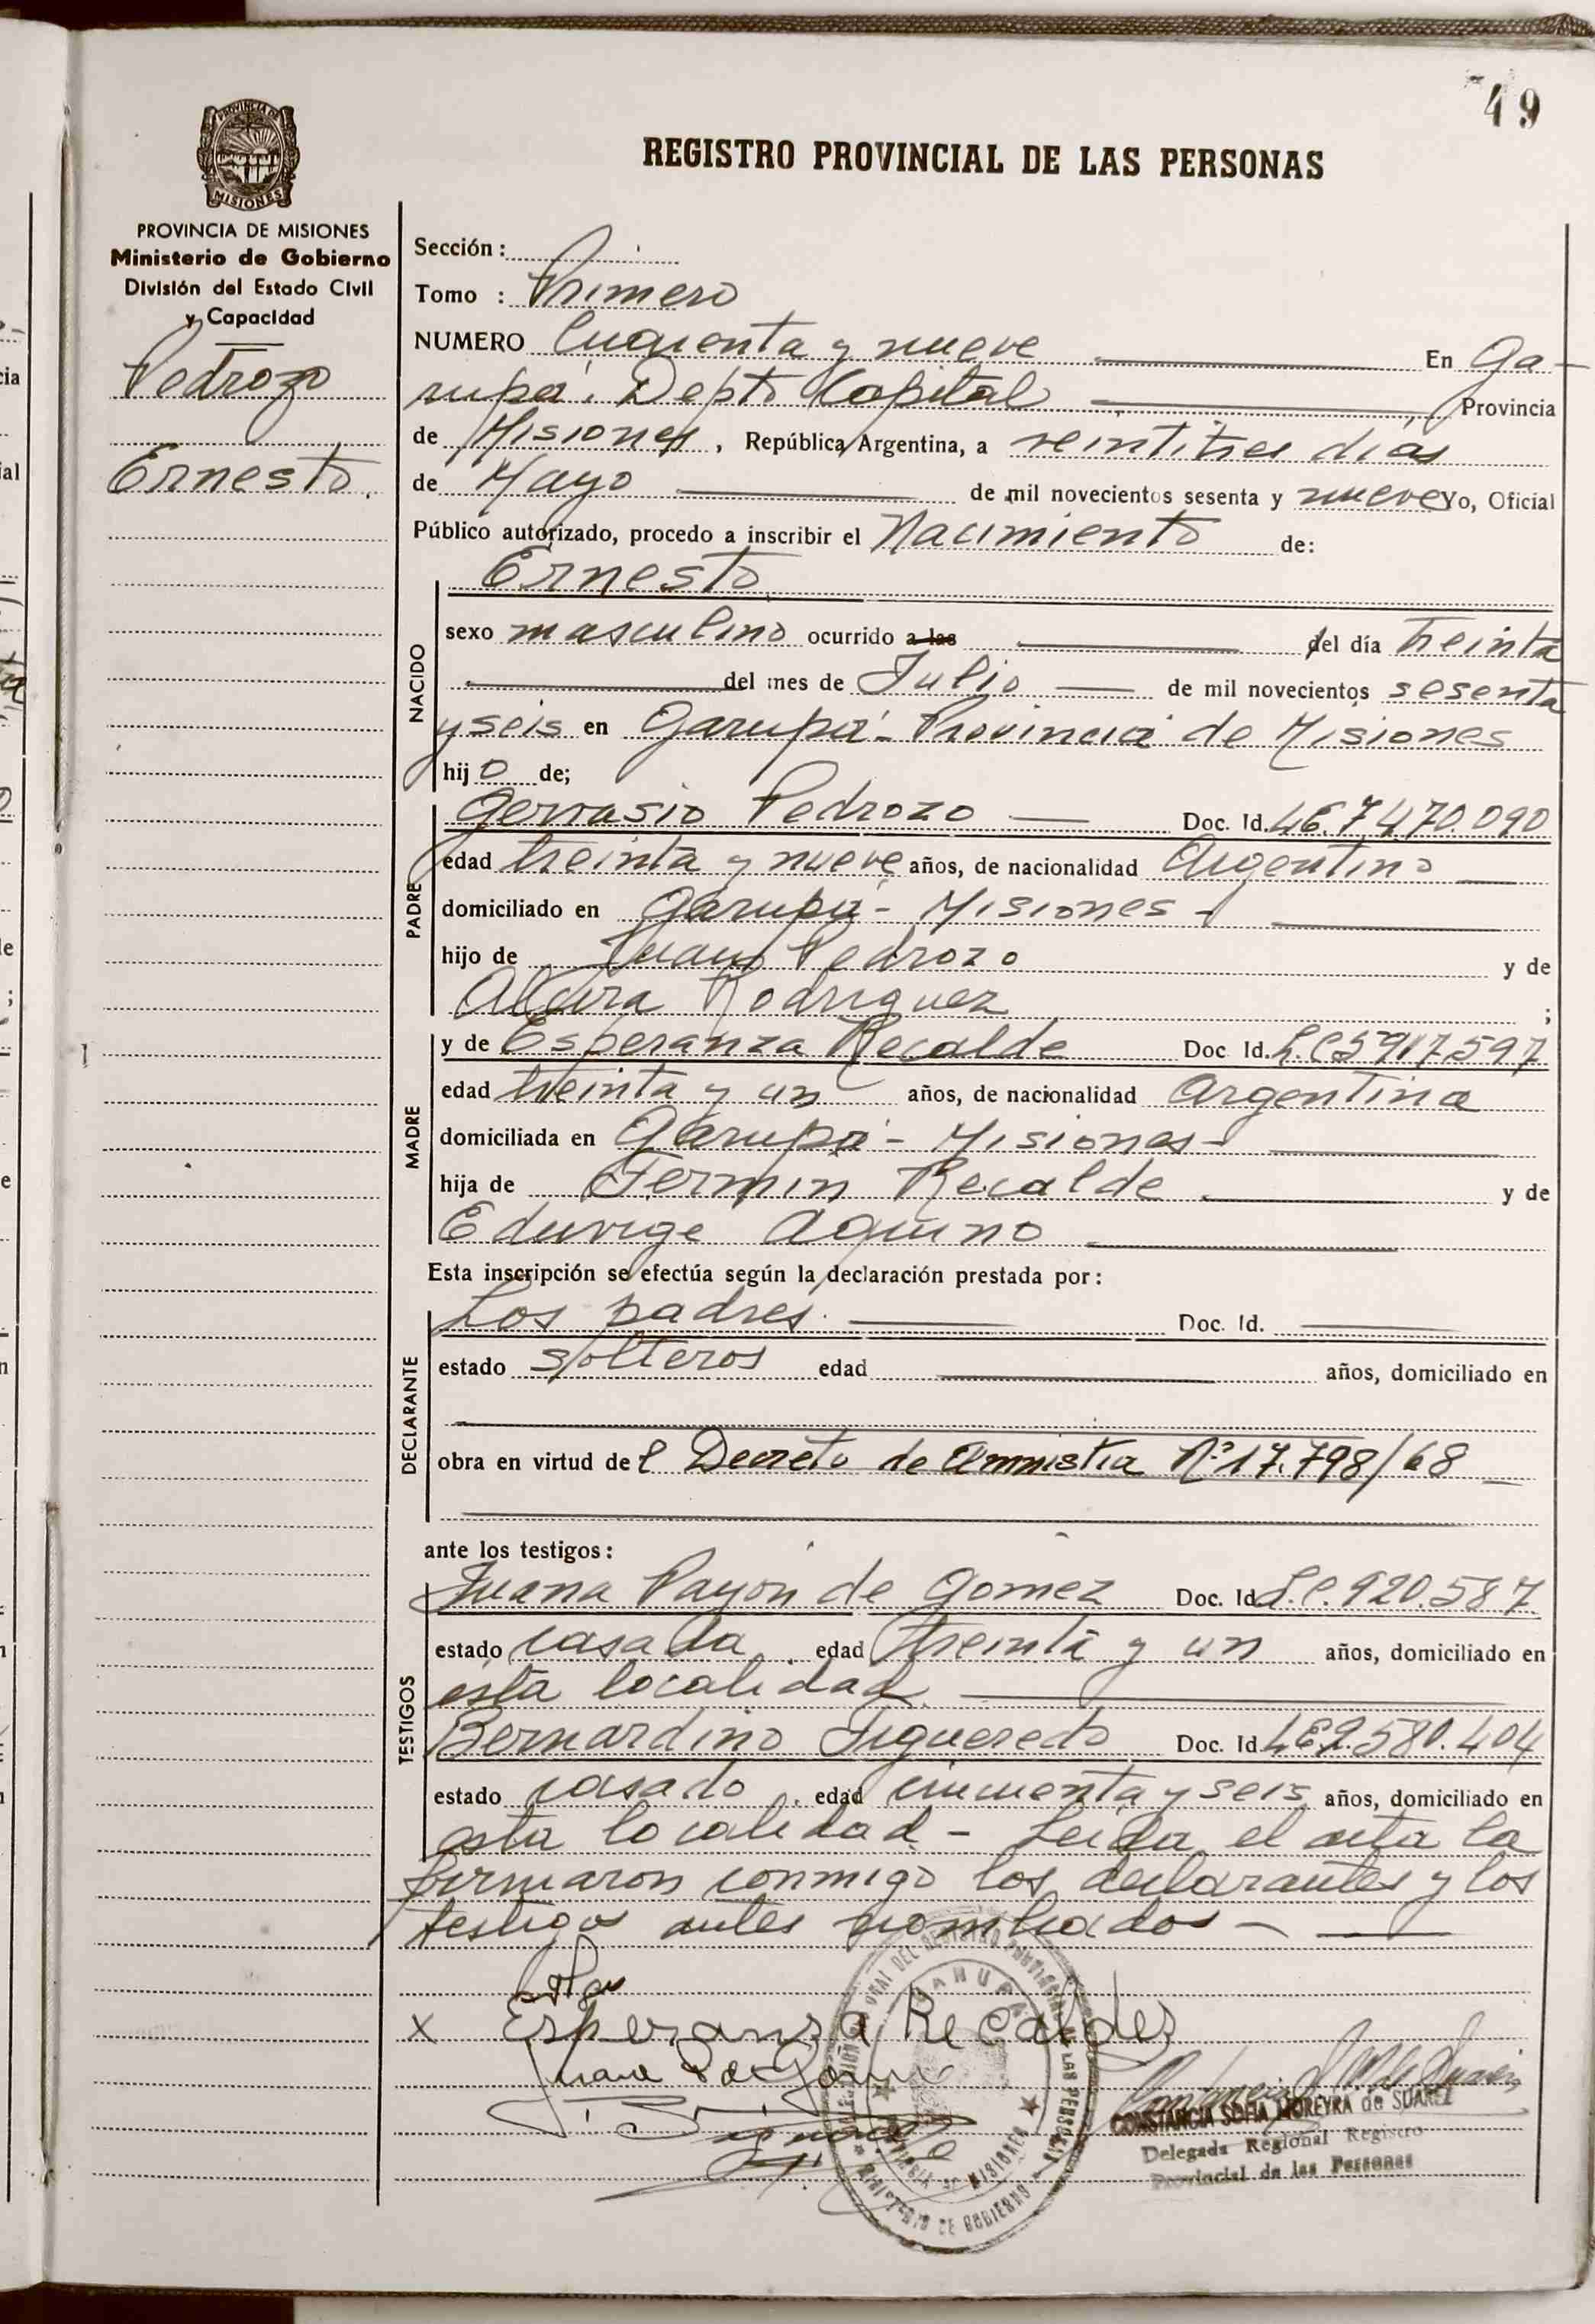 49
PROVINCIA DE
MISIONES
REGISTRO PROVINCIAL DE LAS PERSONAS
PROVINCIA DE MISIONES
Ministerio de Gobierno
División del Estado Civil
y Capacidad
Pedrozo
Ernesto.
Sección:
Tomo : Primero
NUMERO Cuarenta y nueve En Ga-
rupá. Depto Capital , Provincia
de Misiones, República Argentina, a veintitres dias
de Mayo de mil novecientos sesenta y nueve Yo, Oficial
Público autorizado, procedo a inscribir el Nacimiento de:
Ernesto
NACIDO
sexo masculino ocurrido a las del día treinta
del mes de Julio de mil novecientos sesenta
y seis en Garupá - Provincia de Misiones
hijo de;
PADRE
Gervasio Pedrozo Doc. Id. 7.470.090
edad treinta y nueve años, de nacionalidad Argentino
domiciliado en Garupá - Misiones -
hijo de Juan Pedrozo y de
Rodriguez ;
MADRE
y de Esperanza Recalde Doc Id. L.C 5917.597
edad treinta y un años, de nacionalidad argentina
domiciliada en Garupá - Misiones -
hija de Fermin Recalde y de
Eduvige Aquino
Esta inscripción se efectúa según la declaración prestada por:
DECLARANTE
Los padres. Doc. Id.
estado solteros edad años, domiciliado en
obra en virtud del Decreto de Amnistia Nº 17.798/68
ante los testigos:
TESTIGOS
Juana Payon de Gomez Doc. Id L.C. 920.587
estado casada, edad treinta y un años, domiciliado en
esta localidad
Bernardino Figueredo Doc. Id L.E 2.580.404
estado casado, edad cincuenta y seis años, domiciliado en
esta localidad - Leida el acta la
firmaron conmigo los declarantes y los
testigos antes nombrados -
x Esperansa Recaldes
Juana P de Gomez
CONSTANCIA SOFIA MOREYRA de SUAREZ
Delegada Regional Registro
Provincial de las Personas
GARUPA
MINISTERIO DE GOBIERNO